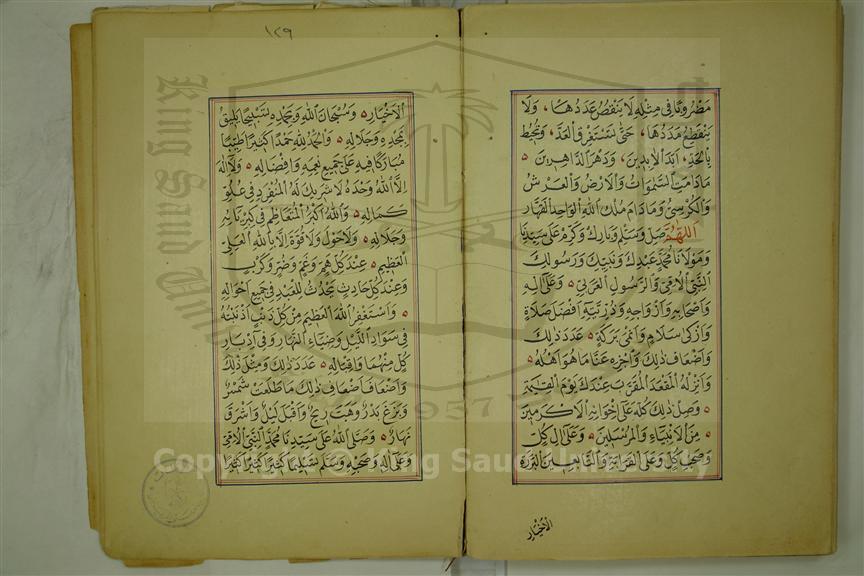 مضروبا في مثله لا ينقص عددها، ولا
ينقطع مددها، حتى تستغرق العد، وتحيط
بالحد، ابد الابدين، ودهر الداهرين
ما دامت السموات والارض والعرش
والكرسي وما دام ملك الله الواحد القهار
اللهم صل وسلم وبارك وكرم على سيدنا
ومولانا محمد عبدك ونبيك ورسولك
النبي الامي والرسول العربي وعلى اله
واصحابه وازواجه وذريته افضل صلاة
وازكى سلام وانمى بركة عدد ذلك
واضعاف ذلك واجزه عنا ما هو اهله
وانزله المقعد المقرب عندك يوم القيامة
وصل ذلك كله على اخوانه الاكرمين
من الانبياء والمرسلين وعلى ال كل
وصحب كل وعلى القرابة والتابعين البررة
الاخيار
١٢٩
الاخيار وسبحان الله وبحمده تسبيحا يليق
بمجده وجلاله والحمد لله حمدا كثيرا طيبا
مباركا فيه على جميع نعمه وافضاله ولا اله
الا الله وحده لا شريك له المنفرد في علو
كماله والله اكبر المتعاظم في كبريائه
وجلاله ولا حول ولا قوة الا بالله العلي
العظيم عند كل هم وغم وضر وكرب
وعند كل حادث يحدث للعبد في جميع احواله
واستغفر الله العظيم من كل ذنب اذنبته
في سواد الليل وضياء النهار وفي ادبار
كل منهما واقباله عدد ذلك ومثل ذلك
واضعاف اضعاف ذلك ما طلعت شمس
وبزغ بدر وهبت ريح واقبل ليل واشرق
نهار وصلى الله على سيدنا محمد النبي الامي
وعلى اله وصحبه وسلم تسليما كثيرا كثيرا كثيرا
King Saud University
1957
Copyright © King Saud University